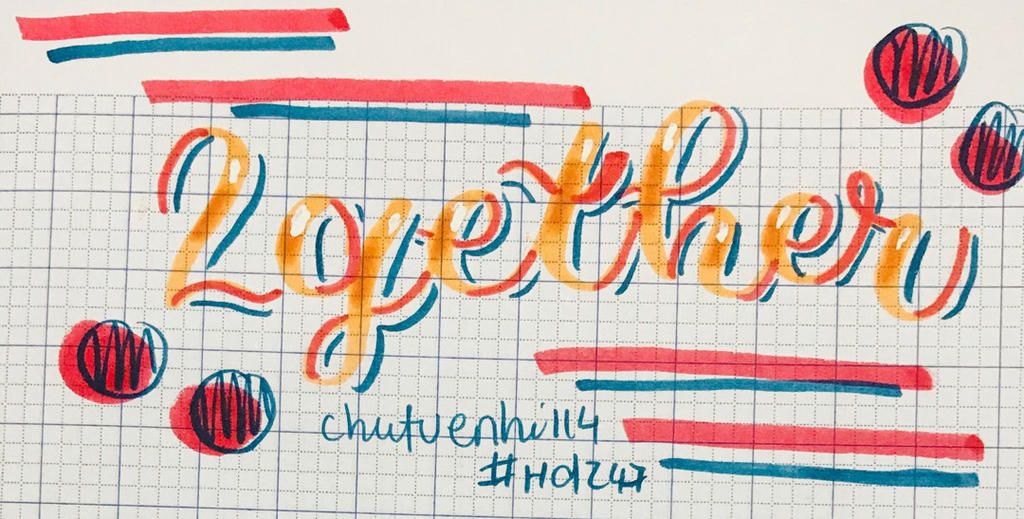 2gether
chutuenhi114
#HD247